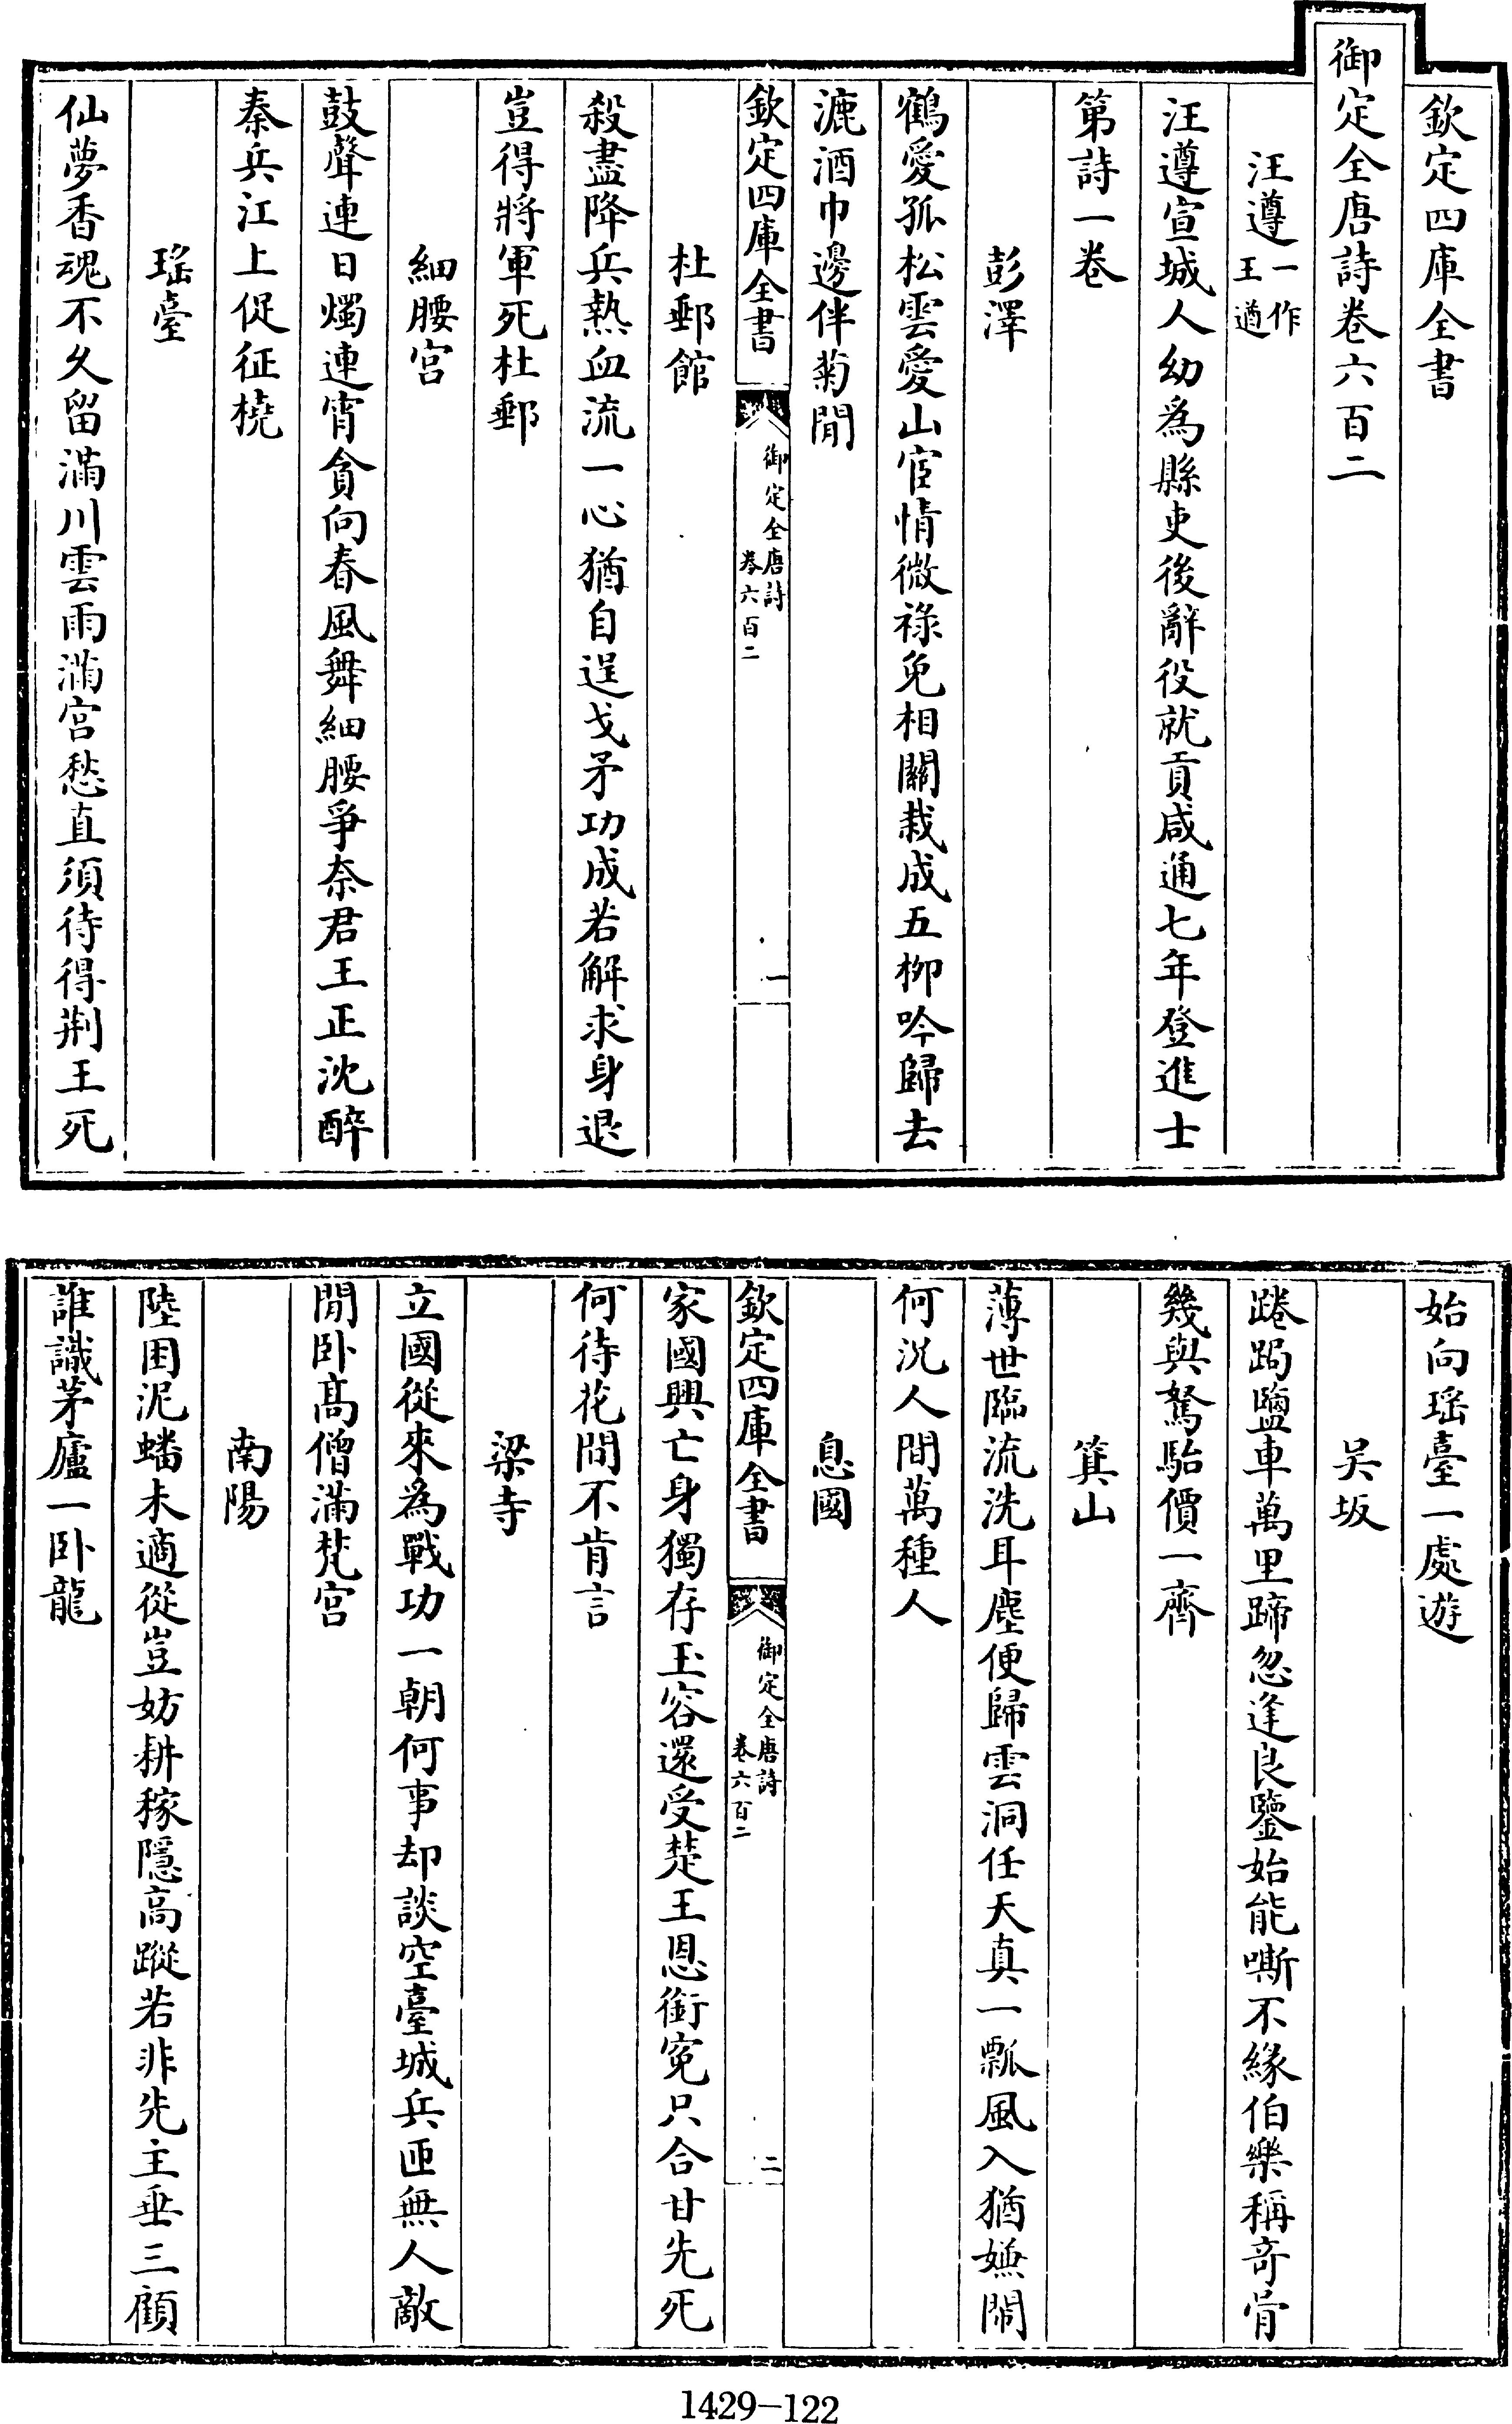 欽定四庫全書
御定全唐詩卷六百二
汪遵一作王遒
汪遵宣城人幼為縣吏後辭役就貢咸通七年登進士
第詩一卷
彭澤
鶴愛孤松雲愛山宦情微祿免相關栽成五柳吟歸去
漉酒巾邊伴菊閒
欽定四庫全書
御定全唐詩
卷六百二
一
杜郵館
殺盡降兵熱血流一心猶自逞戈矛功成若解求身退
豈得將軍死杜郵
細腰宮
鼓聲連日燭連宵貪向春風舞細腰爭奈君王正沈醉
秦兵江上促征橈
瑤臺
仙夢香魂不久留滿川雲雨滿宮愁直須待得荆王死
始向瑤臺一處遊
吳坂
踡跼鹽車萬里蹄忽逢良鑒始能嘶不緣伯樂稱奇骨
幾與駑駘價一齊
箕山
薄世臨流洗耳塵便歸雲洞任天真一瓢風入猶嫌鬧
何況人間萬種人
息國
欽定四庫全書
御定全唐詩
卷六百二
二
家國興亡身獨存玉容還受楚王恩銜寃只合甘先死
何待花間不肯言
梁寺
立國從來為戰功一朝何事却談空臺城兵匝無人敵
閒卧高僧滿梵宮
南陽
陸困泥蟠未適從豈妨耕稼隱高蹤若非先主垂三顧
誰識茅廬一卧龍
1429-122